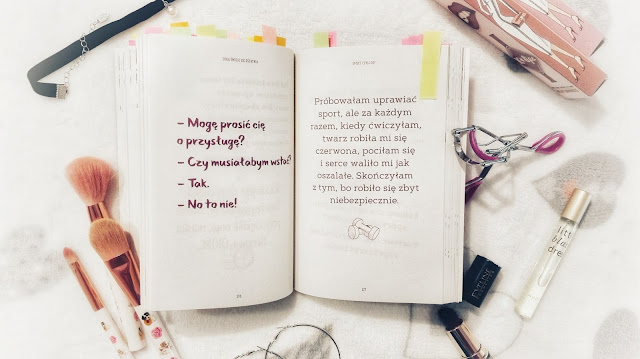 – Mogę prosić cię
o przysługę?
– Czy musiałabym wstać?
– Tak.
– No to nie!
Próbowałam uprawiać
sport, ale za każdym
razem, kiedy ćwiczyłam,
twarz robiła mi się
czerwona, pociłam się
i serce waliło mi jak
oszalałe. Skończyłam
z tym, bo robiło się zbyt
niebezpiecznie.
little
black
dress
EVELINE